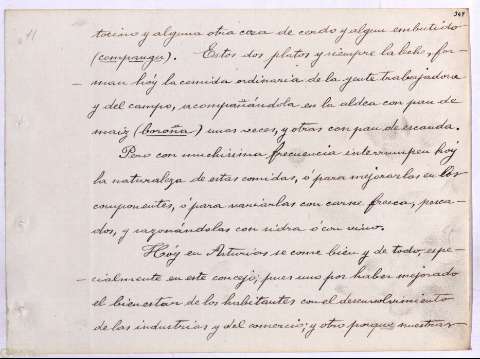 369
11
tocino y alguna otra cosa de cerdo y algun embutido
(compangu). Estos dos platos y siempre la leche, for-
man hoy la comida ordinaria de la gente trabajadora
y del campo, acompañándola en la aldea con pan de
maiz (boroña) unas veces, y otras con pan de escanda.
Pero con muchisima frecuencia interrumpen hoy
la naturaleza de estas comidas, ó para mejorarlas en los
componentes, ó para variarlas con carne fresca, pesca-
dos, y sazonándolas con sidra ó con vino.
Hoy en Asturias se come bien y de todo, espe-
cialmente en este concejo; pues uno por haber mejorado
el bienestar de los habitantes con el desenvolvimiento
de las industrias y del comercio; y otro porque nuestras